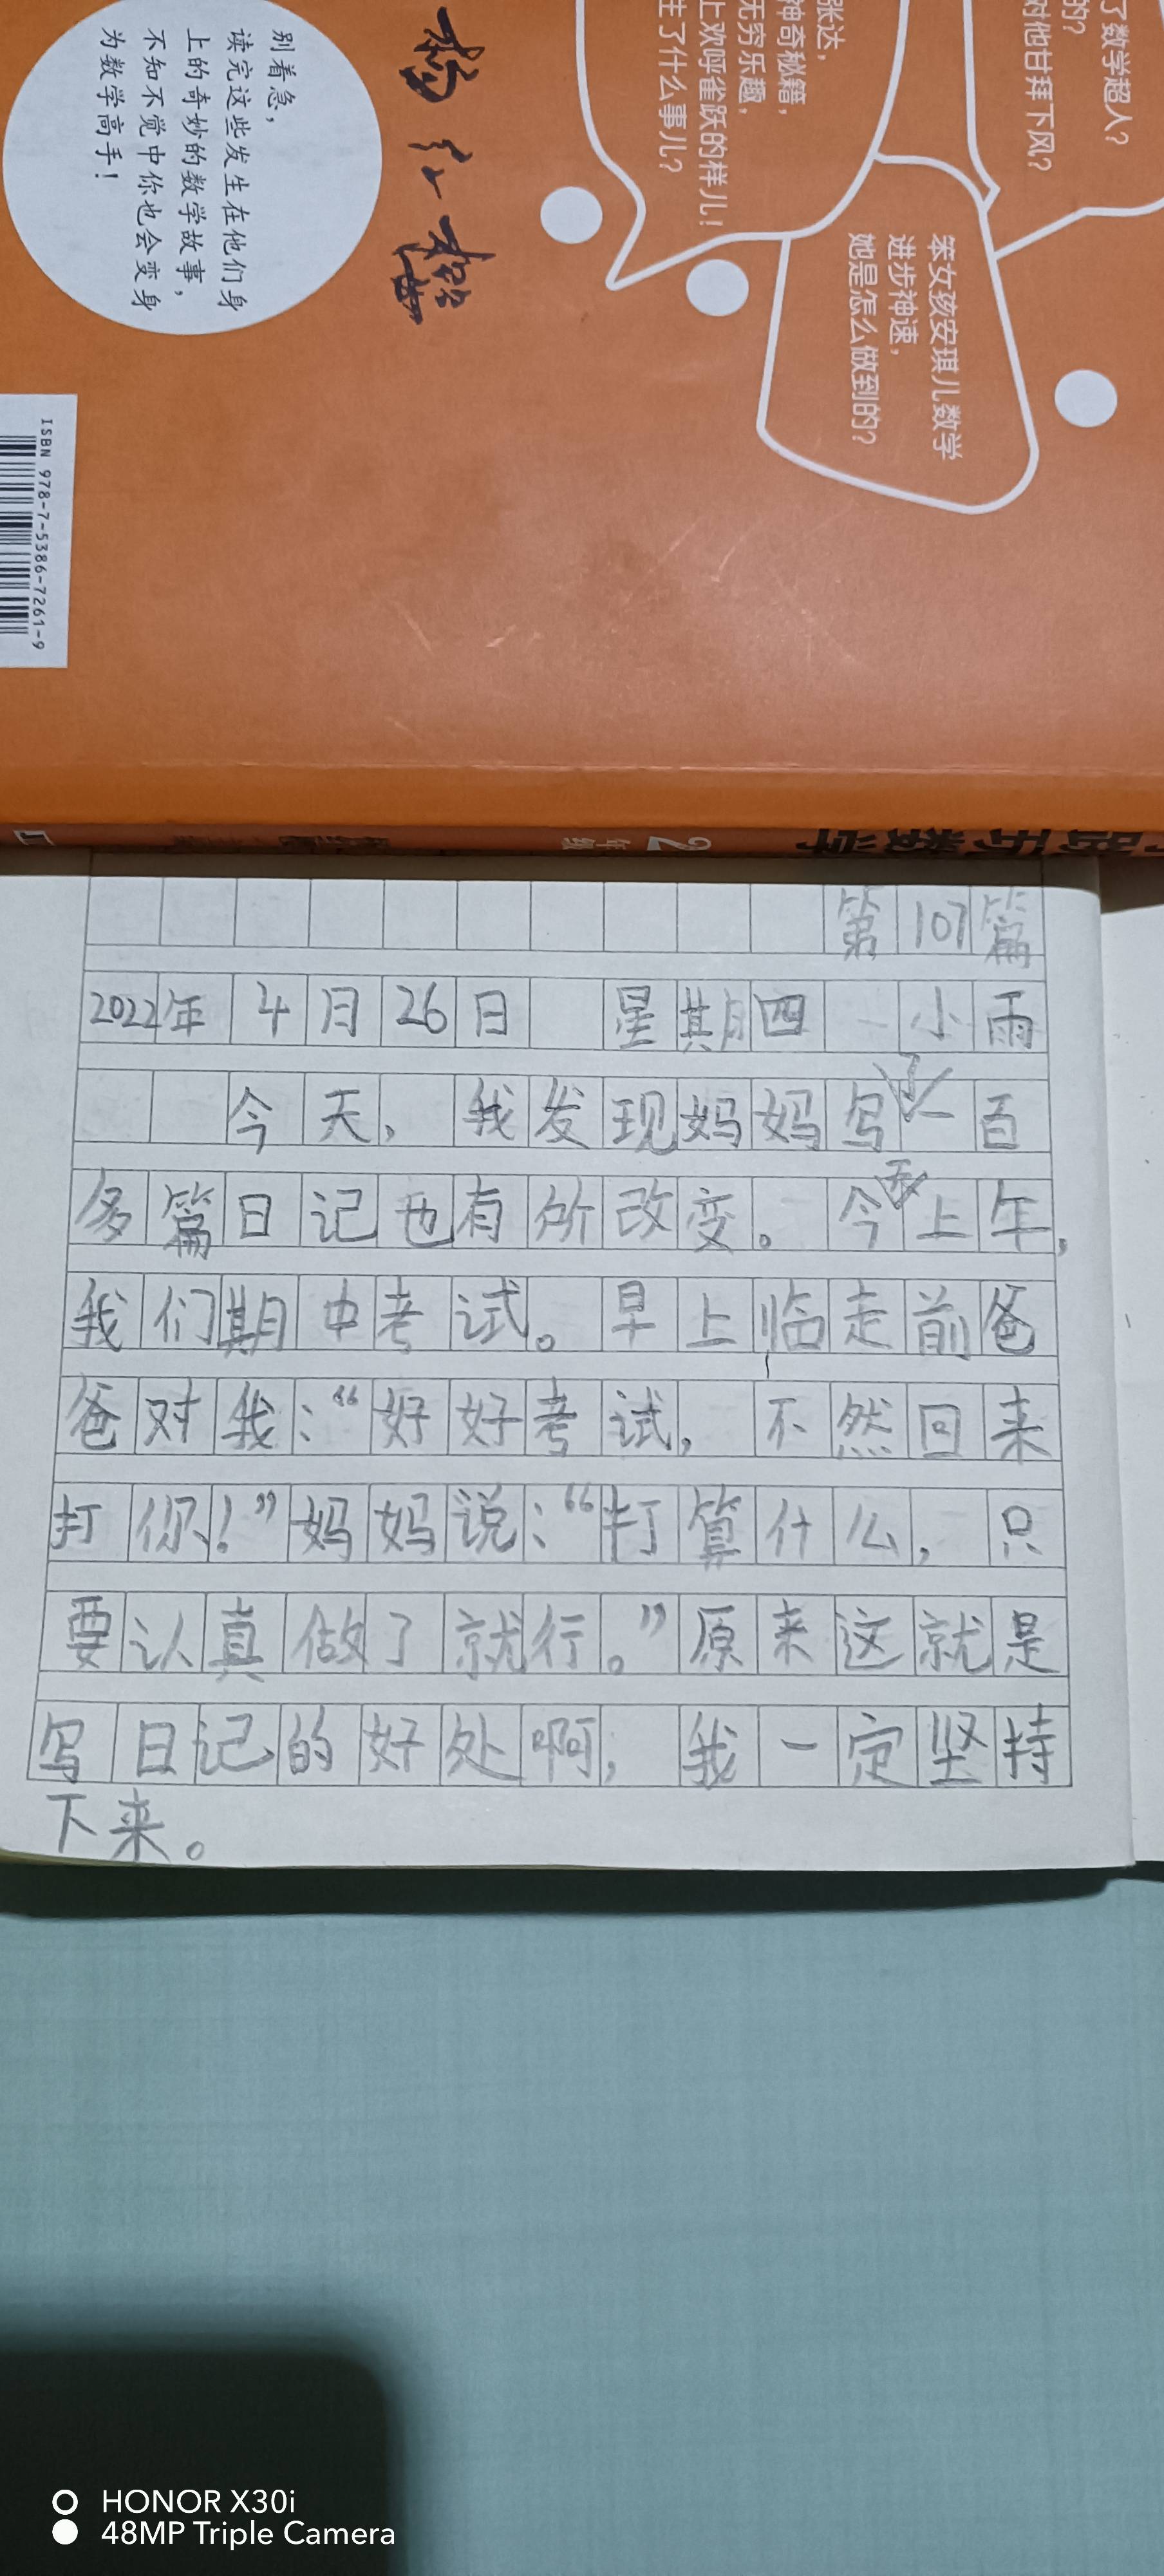 了数学超人?
的?
对他甘拜下风?
张达,
神奇秘籍,
无穷乐趣,
上欢呼雀跃的样儿!
生了什么事儿?
笨女孩安琪儿数学
进步神速,
她是怎么做到的?
别着急,
读完这些发生在他们身
上的奇妙的数学故事,
不知不觉中你也会变身
为数学高手!
杨红樱
ISBN 978-7-5386-7261-9
2年级
第107篇
2022年4月26日 星期四 小雨
今天,我发现妈妈写了一百
多篇日记也有所改变。今天上午,
我们期中考试。早上临走前爸
爸对我:“好好考试,不然回来
打你!”妈妈说:“打算什么,只
要认真做了就行。”原来这就是
写日记的好处啊,我一定坚持
下来。
HONOR X30i
48MP Triple Camera